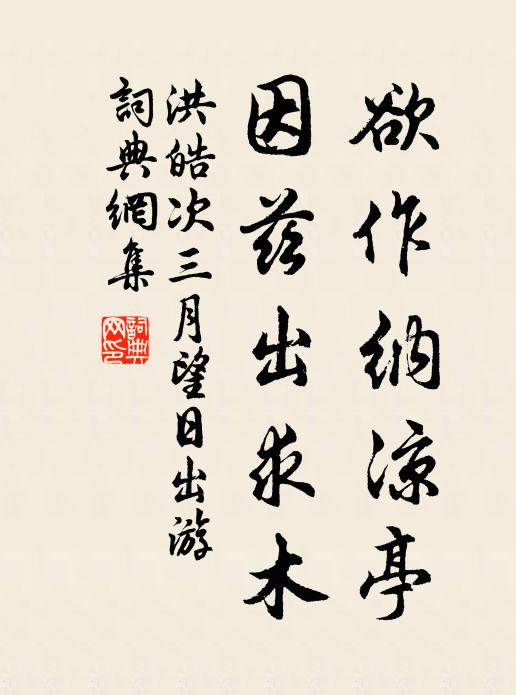 欲作納凉亭
因茲出求木
洪皓次三月望日出游
詞典網集
詞典网印